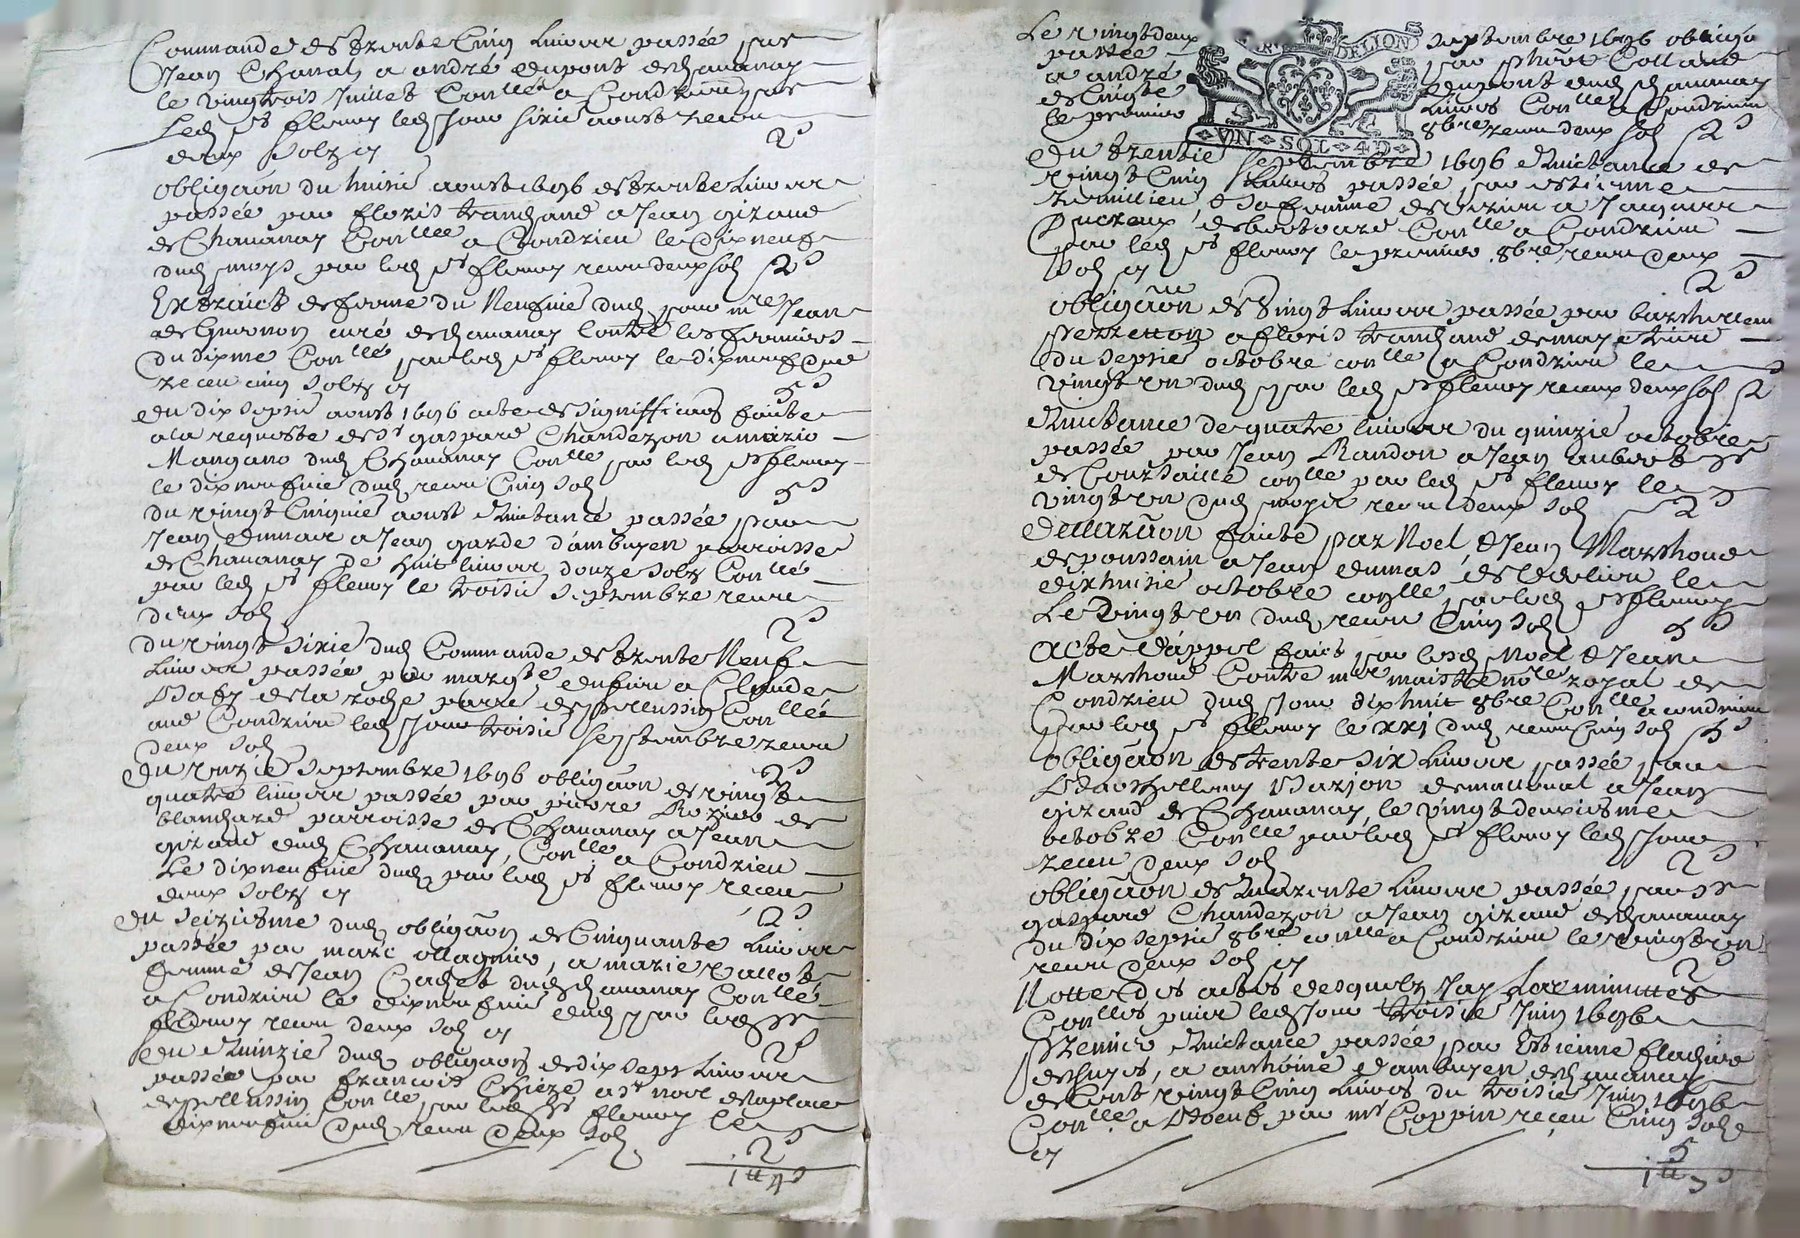 Commande de trente Cinq Livres passée par
Jean Chanal a andré dupont de Chavanay
le vingt trois Juillet Conllée a Condrieu par
Led sr flemoy led jour sixie aoust receu
deux solz cy 2s
Obligãon du huisie aoust 1696 de trente Livres
passée par floris tranchand a Jean giraud
de Chavanay Conllee a Condrieu le dixneuf
dud moys par led sr flemoy receu deux sols 2s
Extraict de ferme du Neufvie dud pour mre Jean
de curé de Chavanay Contre les fermiers
du dixme Conlle par led sr flemoy le dixneuf dud
receu cinq solz cy 5s
du dix septie aoust 1696 acte de faite
a la requeste de sr gaspard Chandezon a
dud Chavanay Conlle par led sr flemoy
le dixneufvie dud receu Cinq sols 5s
du vingt Cinquie aoust quictance passée par
Jean dumas a Jean garde d'ambuyen parroisse
de Chavanay de huit livres douze solz Conllé
par led sr flemoy le troisie septembre receu
deux sols 2s
du vingt sixie dud Commande de trente Neuf
Livres passée par margte a Claude
de la roche parre de pellussin Conllée
aud Condrieu led jour troisie septembre receu
deux sols 2s
du unzie septembre 1696 obligãon de vingt
quatre livres passée par pierre Rozier de
blanchard parroisse de Chavanay a Jean
giraud dud Chavanay, Conlle a Condrieu
Le dixneufvie dud par led sr flemoy receu
deux solz cy 2s
du seiziesme dud obligãon de Cinquante Livres
passée par marc ollagnier, a marie vallot
femme de Jean Cachet dud Chavanay Conllé
a Condrieu le dixneufvie dud par led sr
flemoy receu deux sols cy 2s
du quinzie dud obligãon de dix sept Livres
passée par francois Chieze a sr noel delaplace
de pellussin Conlle par led sr flemoy le
dixneufvie dud receu deux sols
2
1tt 4s
Le vingt deux septembre 1696 obligãon
passée par Colland
a andré dupont dud Chavanay
de Cinqte Livres Conllé a Condrieu
le premier 8bre receu deux sols 2s
DELION
du trentie septembre 1696 quictance de
vingt Cinq Livres passée par estienne
remillieu, & sa femme de verin a Jacques
ducreux, de boctoard Conllé a Condrieu
par led sr flemoy le premier 8bre receu deux
sols cy 2s
obligãon de vingt Livres passée par barthelem
perretton a floris tranchand de
du septie octobre conlle a Condrieu le
vingt un dud par led sr flemoy receu deux sols 2
quictance de quatre livres du quinzie octobre
passée par Jean Randon a Jean aubert
de Conllé par led sr flemoy le
vingt un dud moys receu deux sols 2s
declarãon faite par Noel & Jean Marthoud
de poussain a Jean dumas, de le
dixhuisie octobre conlle par led sr flemoy
Le vingt un dud receu Cinq sols 5s
acte d'appel faict par lesd Noel & Jean
Marthoud Contre mre noire royal de
Condrieu dud jour dixhuit 8bre Conlle a condrieu
par led sr flemoy le xxj dud receu Cinq sols 5s
obligãon de trente six Livres passée par
Barthellemy Marjon de a Jean
girand de Chavanay, le vingt deuxiesme
octobre Conlle par led sr flemoy led jour
receu deux sols 2s
obligãon de quarente Livres passée par sr
gaspard Chandezon a Jean girand de Chavanay
du dix septie 8bre conlle a Condrieu le vingt un
receu deux sols cy 2s
Notte des actes desquelz Jay Les minuttes
Conlles puis led jour troisie Juin 1696
premier quictance passée par Estienne flachier
de , a anthoine d'ambuyen de Chavanay
de Cent vingt Cinq Livres du troisie Juin 1696
Conlle a par mr Coppin receu Cinq sols
cy 5
1tt 7s